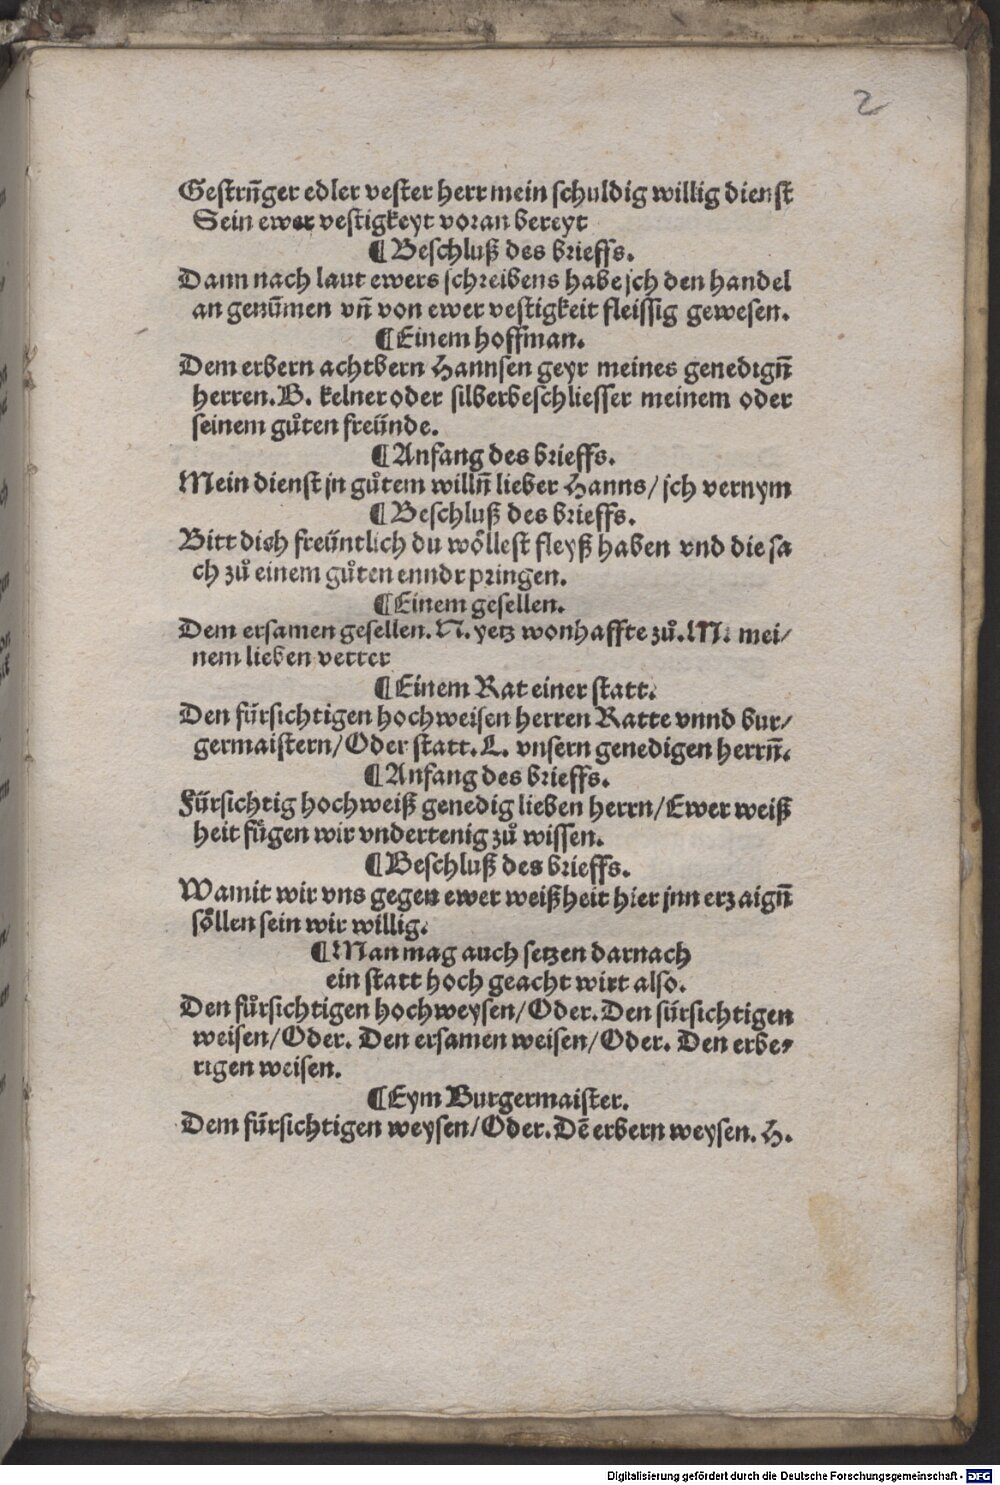 2
Gestrñger edler vester herr mein schuldig willig dienst
Sein ewer vestigkeyt voran bereyt
¶ Beschluß des brieffs.
Dann nach laut ewers schreibens habe jch den handel
an genūmen vñ von ewer vestigkeit fleissig gewesen.
¶ Einem hoffman.
Dem erbern achtbern Hannsen geyr meines genedigñ
herren. B. kelner oder silberbeschliesser meinem oder
seinem gůten freünde.
¶ Anfang des brieffs.
Mein dienst jn gůtem willñ lieber Hanns/ jch vernym
¶ Beschluß des brieffs.
Bitt dich freüntlich du wöllest fleyß haben vnd die sa
ch zů einem gůten enndr pringen.
¶ Einem gesellen.
Dem ersamen gesellen. N. yetz wonhaffte zů. M. mei/
nem lieben vetter
¶ Einem Rat einer statt.
Den fürsichtigen hochweisen herren Ratte vnnd bur/
germaistern/ Oder statt. L. vnsern genedigen herrñ.
¶ Anfang des brieffs.
Fürsichtig hochweiß genedig lieben herrn/ Ewer weiß
heit fůgen wir vndertenig zů wissen.
¶ Beschluß des brieffs.
Wamit wir vns gegen ewer weißheit hier jnn erzaigñ
söllen sein wir willig.
¶ Man mag auch setzen darnach
ein statt hoch geacht wirt also.
Den fůrsichtigen hochweysen/ Oder. Den fürsichtigen
weisen/ Oder. Den ersamen weisen/ Oder. Den erbe/
rigen weisen.
¶ Eym Burgermaister.
Dem fürsichtigen weysen/ Oder. Dē erbern weysen. H.
Digitalisierung gefördert durch die Deutsche Forschungsgemeinschaft - DFG